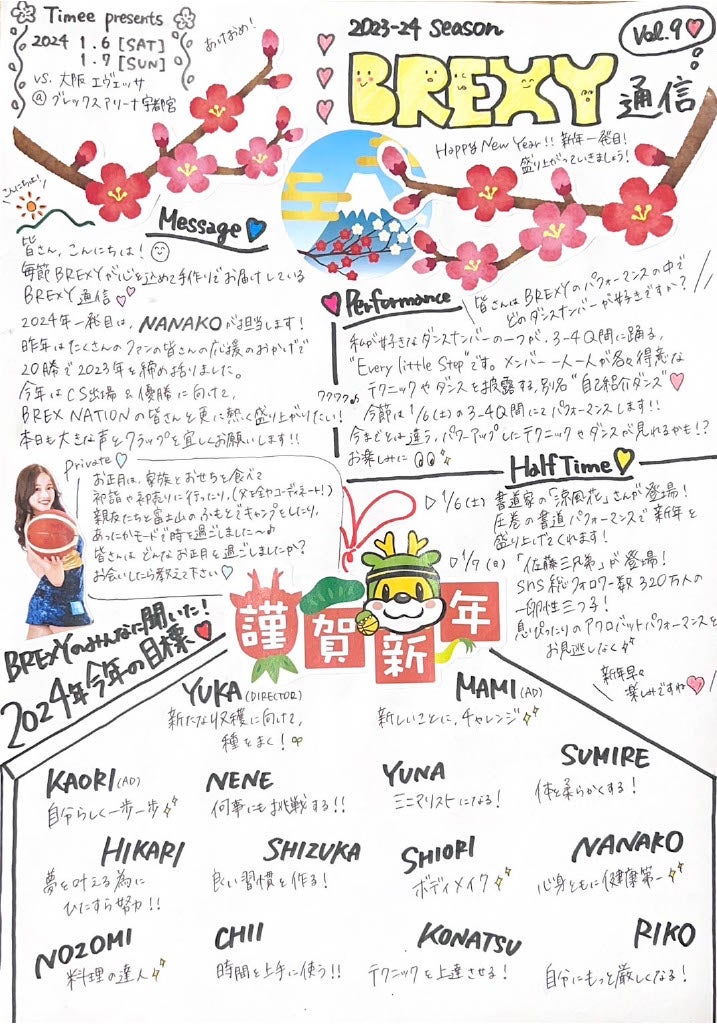 Timee presents
2024 1.6 [SAT]
1.7 [SUN]
vs. 大阪エヴェッサ
@ブレックスアリーナ宇都宮
あけおめ!
2023-24 Season
Vol.9
BREXY通信
Happy New Year!! 新年一発目!
盛り上がっていきましょう!
こんにちは!
Message
皆さん、こんにちは!
毎節BREXYが心を込めて手作りでお届けしている
BREXY通信
2024年一発目は、NANAKOが担当します!
昨年はたくさんのファンの皆さんの応援のおかげで
20勝で2023年を締め括りました。
今年はCS出場&優勝に向けて、
BREX NATIONの皆さんと更に熱く盛り上がりたい!
本日も大きな声とクラップを宜しくお願いします!!
ワクワク♪
Performance
皆さんはBREXYのパフォーマンスの中で
どのダンスナンバーが好きですか?
私が好きなダンスナンバーの一つが、3-4Q間に踊る、
"Every little Step"です。メンバー一人一人が各々得意な
テクニックやダンスを披露する、別名"自己紹介ダンス"
今節は1/6(土)の3-4Q間にてパフォーマンスします!!
今までとは違う、パワーアップしたテクニックやダンスが見れるかも!?
お楽しみに
Private
お正月は、家族とおせちを食べて
初詣や初売りに行ったり、(父を全身コーディネート!)
親友たちと富士山のふもとでキャンプをしたり、
あったかモードで時を過ごしました〜♪
皆さんはどんなお正月を過ごしましたか?
お会いしたら教えて下さい
Half Time
▷1/6(土) 書道家の「涼風花」さんが登場!
圧巻の書道パフォーマンスで新年を
盛り上げてくれます!
▷1/7(日) 「佐藤三兄弟」が登場!
SNS総フォロワー数320万人の
一卵性三つ子!
息ぴったりのアクロバットパフォーマンスを
お見逃しなく
新年早々
楽しみですね
謹賀新年
BREXYのみんなに聞いた!
2024年今年の目標
YUKA (DIRECTOR)
新たな収穫に向けて、
種をまく!
MAMI (AD)
新しいことに、チャレンジ
KAORI (AD)
自分らしく一歩一歩
NENE
何事にも挑戦する!!
YUNA
ミニマリストになる!
SUMIRE
体を柔らかくする!
HIKARI
夢を叶える為に
ひたすら努力!!
SHIZUKA
良い習慣を作る!
SHIORI
ボディメイク
NANAKO
心身ともに健康第一
NOZOMI
料理の達人
CHII
時間を上手に使う!!
KONATSU
テクニックを上達させる!
RIKO
自分にもっと厳しくなる!